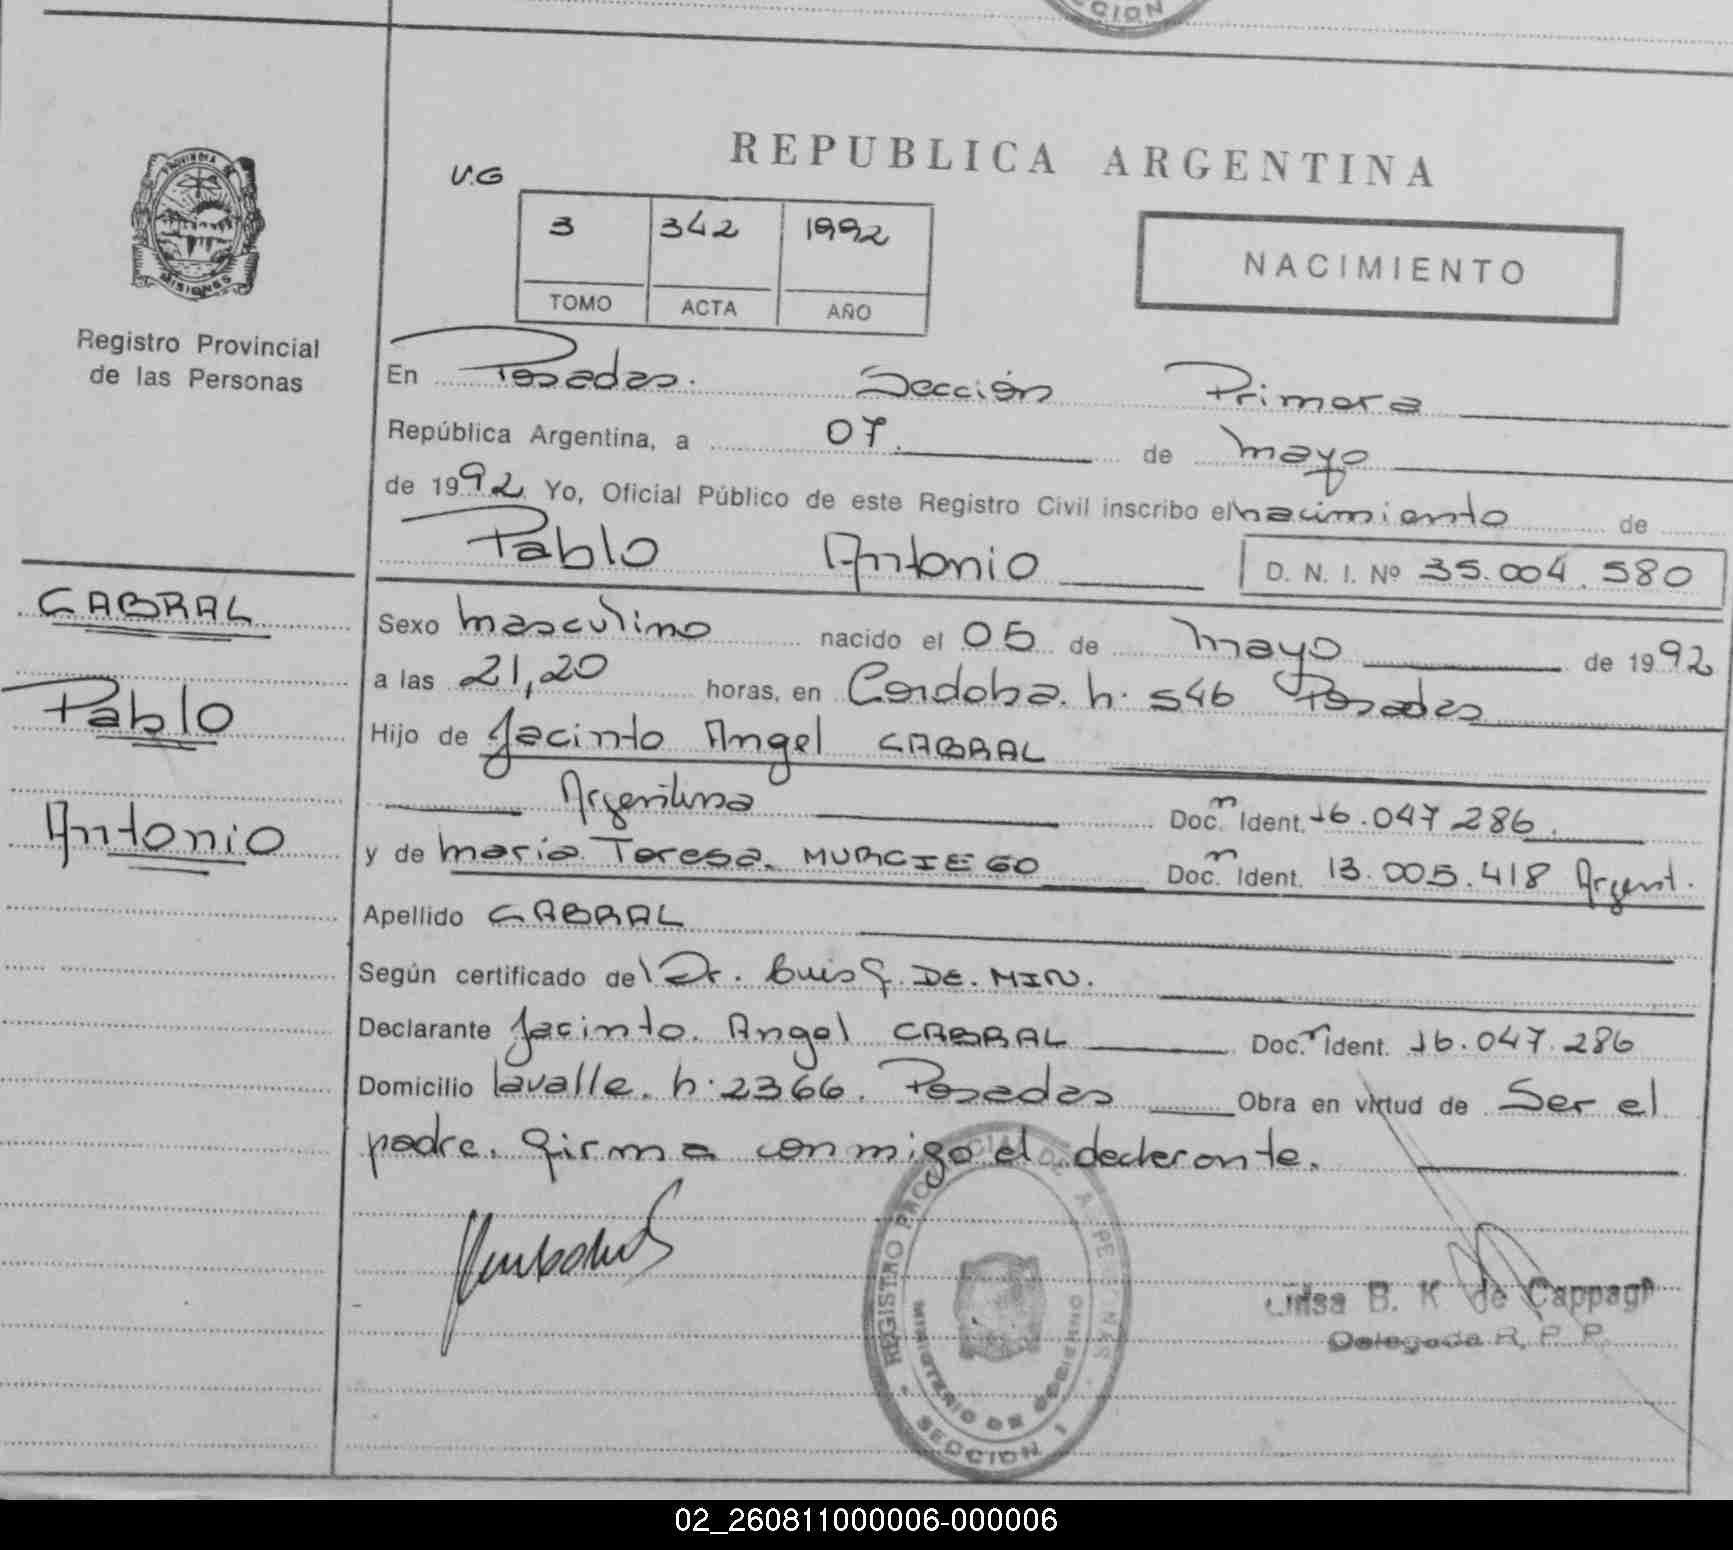 CCION
REPUBLICA ARGENTINA
PROVINCIA DE
MISIONES
V.G
3 342 1992
TOMO ACTA AÑO
NACIMIENTO
Registro Provincial
de las Personas
En Posadas. Sección Primera
República Argentina, a 07 de mayo
de 1992 Yo, Oficial Público de este Registro Civil inscribo el nacimiento de
Pablo Antonio D. N. I. Nº 35.004.580
CABRAL
Pablo
Antonio
Sexo masculino nacido el 05 de mayo de 1992
a las 21,20 horas, en Cordoba. h. 546 Posadas
Hijo de Jacinto Angel CABRAL
Argentina Doc. Ident. 16.047.286.
y de Maria Teresa. MURCIEGO Doc. Ident. 13.005.418 Argent.
Apellido CABRAL
Según certificado del Dr. Luis G. DE. MIN.
Declarante Jacinto. Angel CABRAL Doc. Ident. 16.047.286
Domicilio lavalle. h. 2366. Posadas Obra en virtud de Ser el
padre. Firma conmigo el declarante.
REGISTRO PROVINCIAL DE LAS PERSONAS
MINISTERIO DE GOBIERNO
SECCION 1
B. K de Cappagli
Delegada R. P. P.
02_260811000006-000006